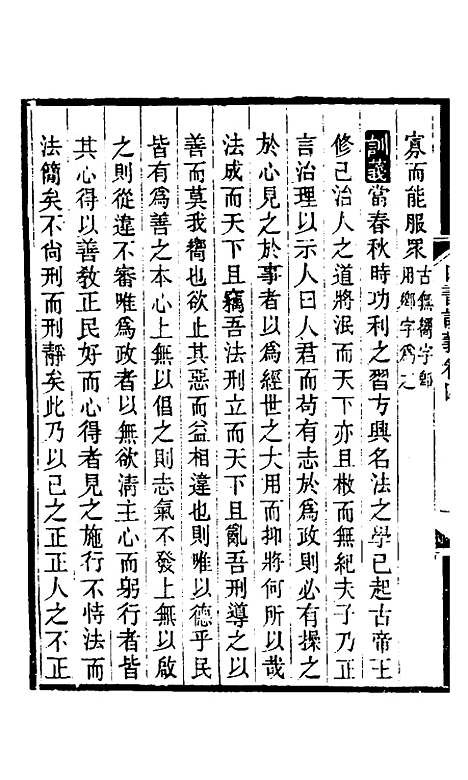 寡而能服眾
古無嚮字即
用鄉字爲之
訓義當春秋時功利之習方興名法之學已起古帝王
修己治人之道將泯而天下亦且敝而無紀夫子乃正
言治理以示人曰人君而苟有志於爲政則必有操之
於心見之於事者以爲經世之大用而抑將何所以哉
法成而天下且竊吾法刑立而天下且亂吾刑導之以
善而莫我嚮也欲止其惡而益相違也則唯以德乎民
皆有爲善之本心上無以倡之則志氣不發上無以啟
之則從違不審唯爲政者以無欲清主心而躬行者皆
其心得以善教正民好而心得者見之施行不恃法而
法簡矣不尚刑而刑靜矣此乃以己之正正人之不正